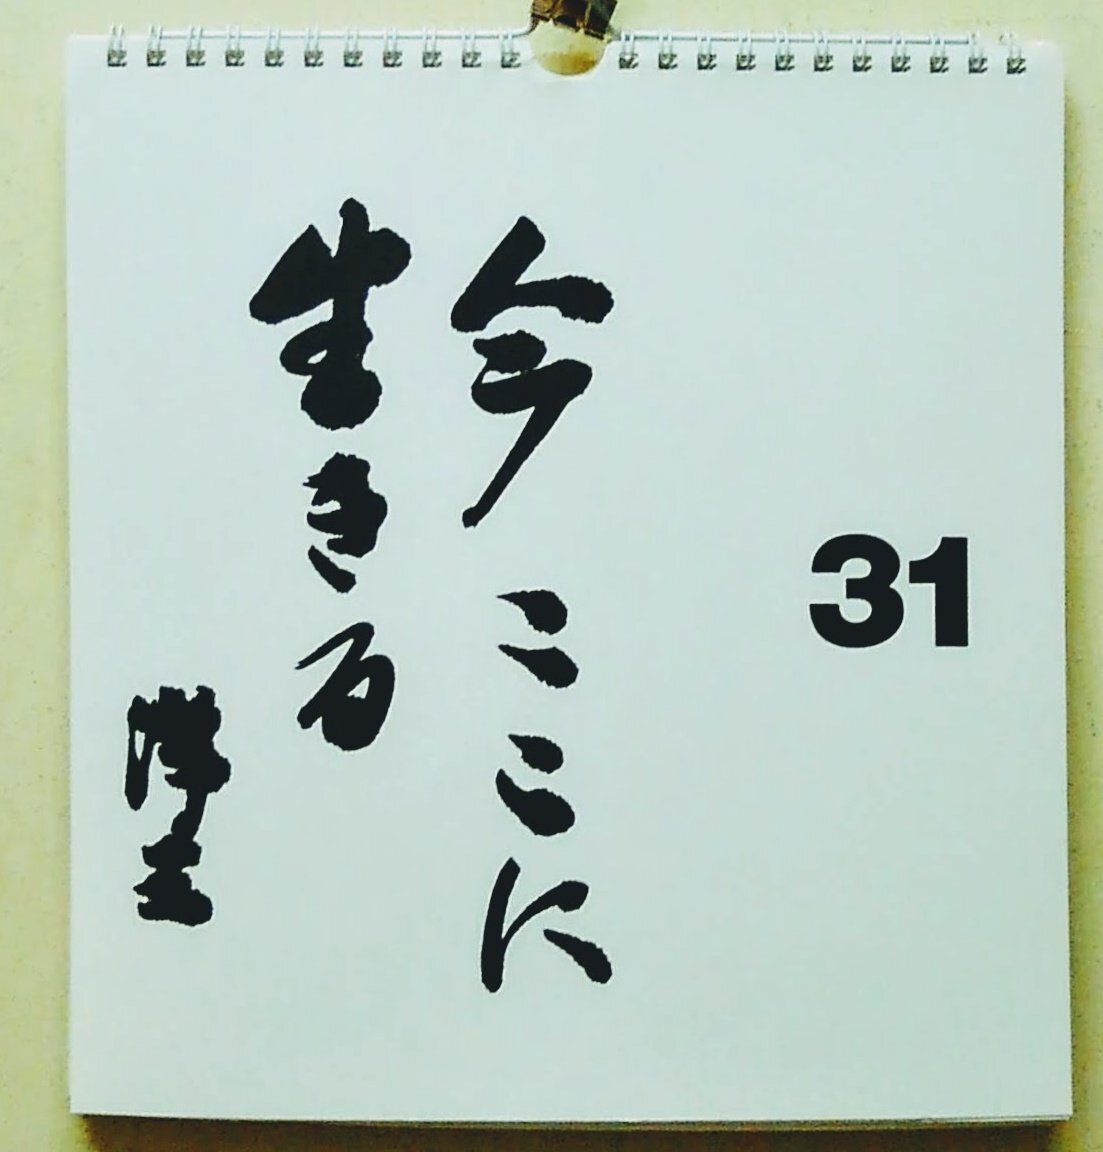 31
今ここに
生きる